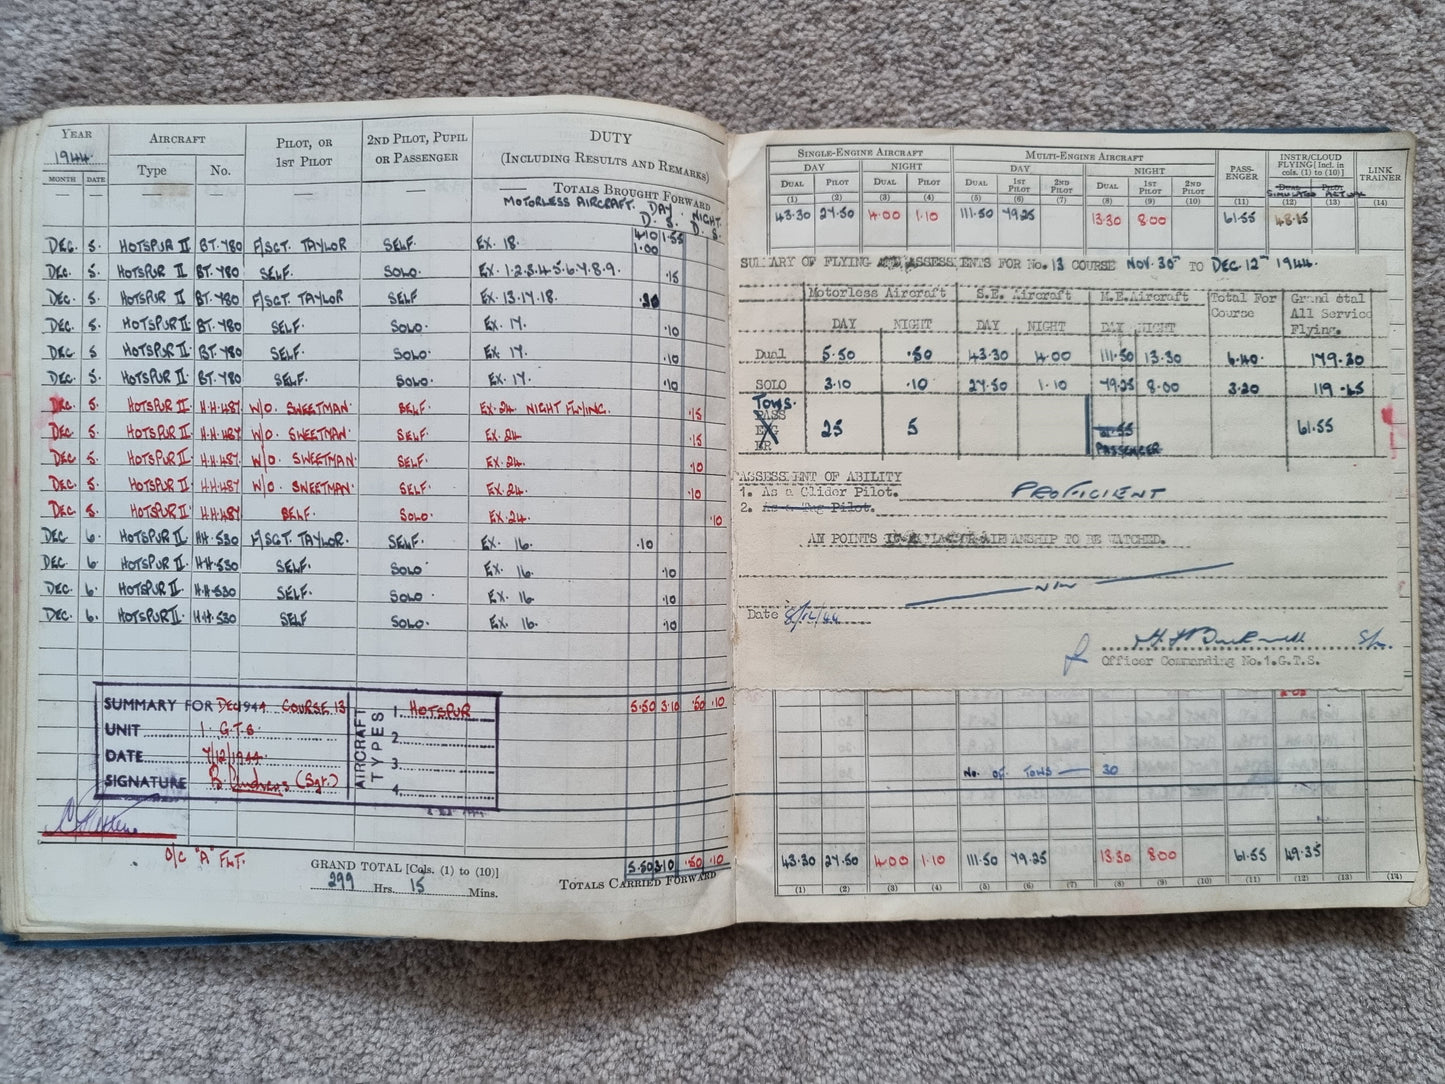 YEAR AIRCRAFT PILOT, OR 1ST PILOT 2ND PILOT, PUPIL OR PASSENGER DUTY (INCLUDING RESULTS AND REMARKS)
1944.
MONTH DATE Type No.
— — — — — — — TOTALS BROUGHT FORWARD
MOTORLESS AIRCRAFT. DAY. NIGHT
D. S. D. S.
4.10 1.55
DEC. 5. HOTSPUR II BT.780 F/SGT. TAYLOR SELF. EX. 18. 1.00
DEC. 5. HOTSPUR II BT.780 SELF. SOLO. EX. 1.2.3.4.5.6.7.8.9. .15
DEC. 5. HOTSPUR II BT.780 F/SGT. TAYLOR SELF EX. 13.17.18. .30
DEC. 5. HOTSPUR II BT.780 SELF. SOLO. EX. 17. .10
DEC. 5 HOTSPUR II BT.780 SELF. SOLO. EX. 17. .10
DEC. 5. HOTSPUR II BT.780 SELF. SOLO. EX. 17. .10
DEC. 5. HOTSPUR II HH.487 W/O. SWEETMAN. SELF. EX. 24. NIGHT FLYING. .15
DEC 5. HOTSPUR II HH.487 W/O. SWEETMAN. SELF. EX. 24 .15
DEC 5. HOTSPUR II HH.487 W/O. SWEETMAN. SELF. EX. 24. .10
DEC 5. HOTSPUR II HH.487 W/O. SWEETMAN. SELF. EX. 24. .10
DEC 5. HOTSPUR II HH.487 SELF. SOLO. EX.24. .10
DEC 6. HOTSPUR II HH.530 F/SGT. TAYLOR. SELF. EX. 16. .10
DEC 6. HOTSPUR II. HH.530 SELF. SOLO EX. 16. .10
DEC 6. HOTSPUR II HH.530 SELF. SOLO. EX. 16 .10
DEC 6. HOTSPUR II HH.530 SELF SOLO. EX. 16. .10
5.50 3.10 .50 .10
SUMMARY FOR DEC 1944 COURSE 13
UNIT 1. G.T.S.
DATE 7/12/1944
SIGNATURE (Sgt.)
AIRCRAFT TYPES
1. HOTSPUR
2
3.
4.
O/C "A" FLT.
GRAND TOTAL [Cols. (1) to (10)]
299 Hrs. 15 Mins.
5.50 3.10 .50 .10
TOTALS CARRIED FORWARD
SINGLE-ENGINE AIRCRAFT MULTI-ENGINE AIRCRAFT PASSENGER INSTR/CLOUD FLYING [Incl. in cols. (1) to (10)] LINK TRAINER
DAY NIGHT DAY NIGHT
DUAL PILOT DUAL PILOT DUAL 1ST PILOT 2ND PILOT DUAL 1ST PILOT 2ND PILOT DUAL PILOT
SIMULATED ACTUAL
(1) (2) (3) (4) (5) (6) (7) (8) (9) (10) (11) (12) (13) (14)
43.30 27.50 4.00 1.10 111.50 79.25 13.30 8.00 61.55 48.15
SUMMARY OF FLYING AND ASSESSMENTS FOR No. 13 COURSE NOV. 30TH TO DEC 12TH 1944.
Motorless Aircraft S.E. Aircraft M.E. Aircraft Total For Course Grand total All Service Flying.
DAY NIGHT DAY NIGHT DAY NIGHT
Dual 5.50 .50 43.30 4.00 111.50 13.30 6.40. 179.30
SOLO 3.10 .10 27.50 1.10 79.25 8.00 3.20 119.45
TOWS.
PASS
25 5 61.55 61.55
PASSENGER
ASSESSMENT OF ABILITY
1. As a Glider Pilot. PROFICIENT
2. As a Tug Pilot.
ANY POINTS IN FLYING OR AIRMANSHIP TO BE WATCHED.
NIL
Date 8/12/44
Officer Commanding No.1.G.T.S.
NO. OF TOWS — 30
43.30 27.50 4.00 1.10 111.50 79.25 13.30 8.00 61.55 49.35
(1) (2) (3) (4) (5) (6) (7) (8) (9) (10) (11) (12) (13) (14)